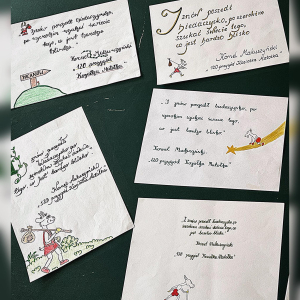 I znów poszedł biedaczysko,
po szerokim szukać świecie
tego, co jest bardzo
blisko.
Kornel Makuszyński
"120 przygód
Koziołka Matołka"
I znów poszedł
biedaczysko, po szerokim
szukać świecie tego,
co jest bardzo blisko
Kornel Makuszyński
"120 przygód Koziołka Matołka"
I znów poszedł biedaczysko, po
szerokim szukać świecie tego,
co jest bardzo blisko."
Kornel Makuszyński
"120 przygód Koziołka Matołka"
I znów poszedł
biedaczysko po
szerokim szukać świecie
tego, co jest bardzo blisko.
Kornel Makuszyński
"120 przygód Koziołka Matołka"
I znów poszedł biedaczysko po
szerokim szukać świecie tego, co
jest bardzo blisko.
Kornel Makuszyński
"120 przygód Koziołka Matołka"